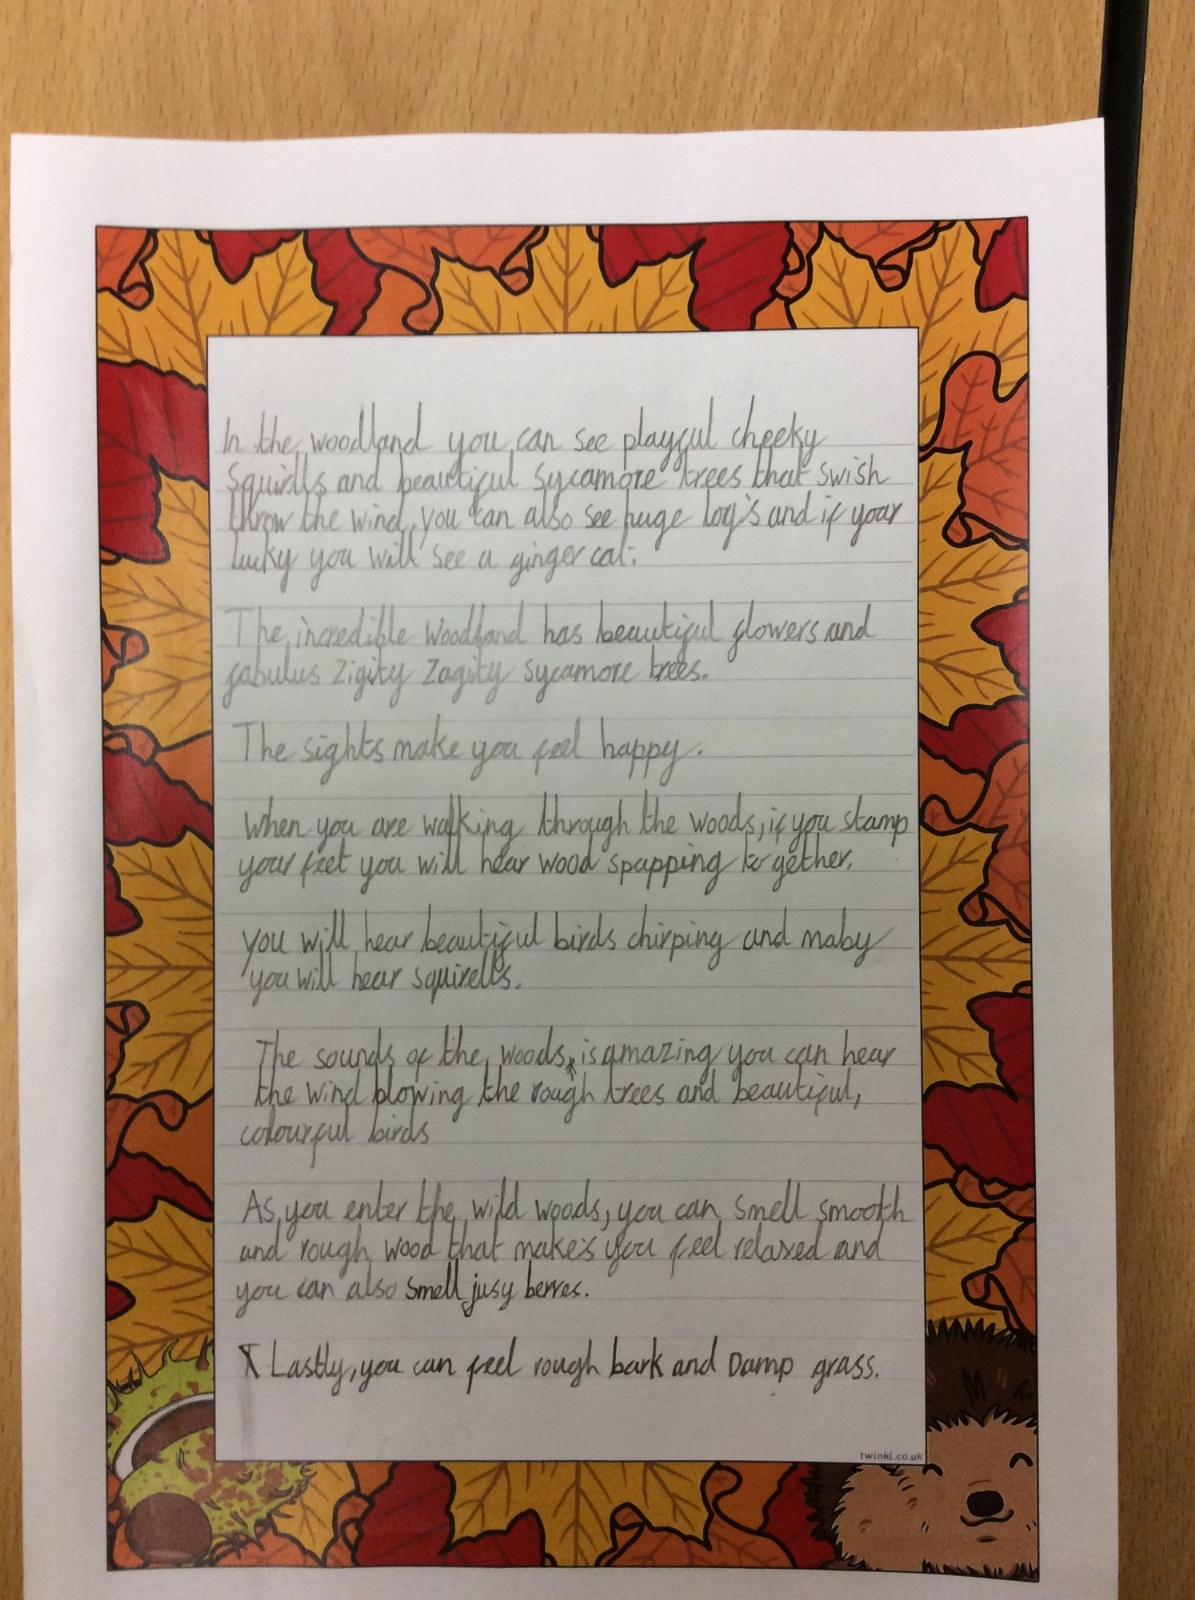 In the woodland you can see playful cheeky
squirlls and beautiful sycamore trees that swish
throw the wind, you can also see huge log's and if your
lucky you will see a ginger cat.
The incredible woodland has beautiful flowers and
fabulus zigity zagity sycamore trees.
The sights make you feel happy.
When you are walking through the woods, if you stamp
your feet you will hear wood spapping to gether.
You will hear beautiful birds chirping and maby
you will hear squirells.
The sounds of the woods, is amazing you can hear
the wind blowing the rough trees and beautiful,
colourful birds
As you enter the wild woods, you can smell smooth
and rough wood that make's you feel relaxed and
you can also smell jusy berres.
Lastly, you can feel rough bark and Damp grass.
twinkl.co.uk